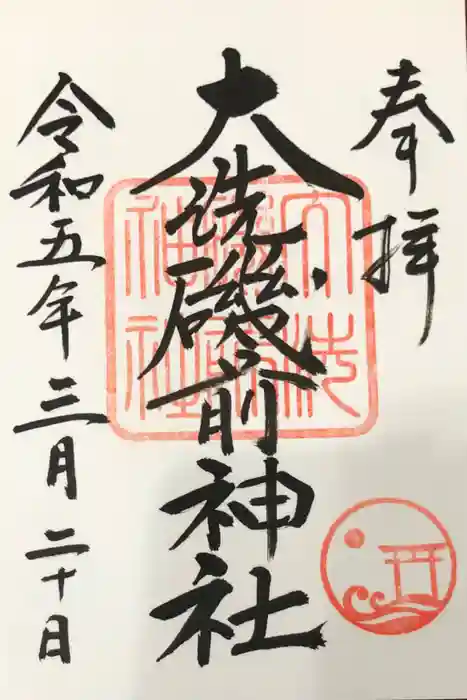 奉拝
大洗磯前神社
大洗
磯前
神社
令和五年三月二十日